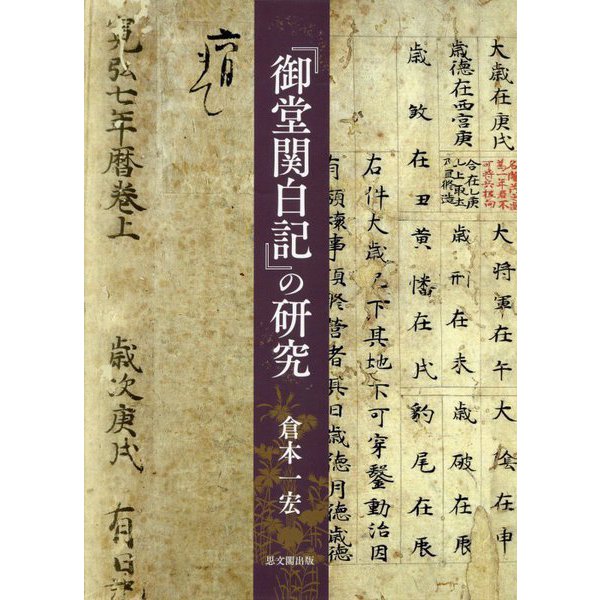 大歳在庚戌 大将軍在午 大陰在申
歳徳在西宮庚
合在乙庚
上取土
歳刑在未 歳破在辰
歳煞在丑 黄幡在戌 豹尾在辰
右件大歳已下其地不可穿鑿動治因
有頽壊事須修營者其日歳徳月徳歳徳
『御堂関白記』の研究
倉本一宏
思文閣出版
寛弘七年暦巻上 歳次庚戌 有日